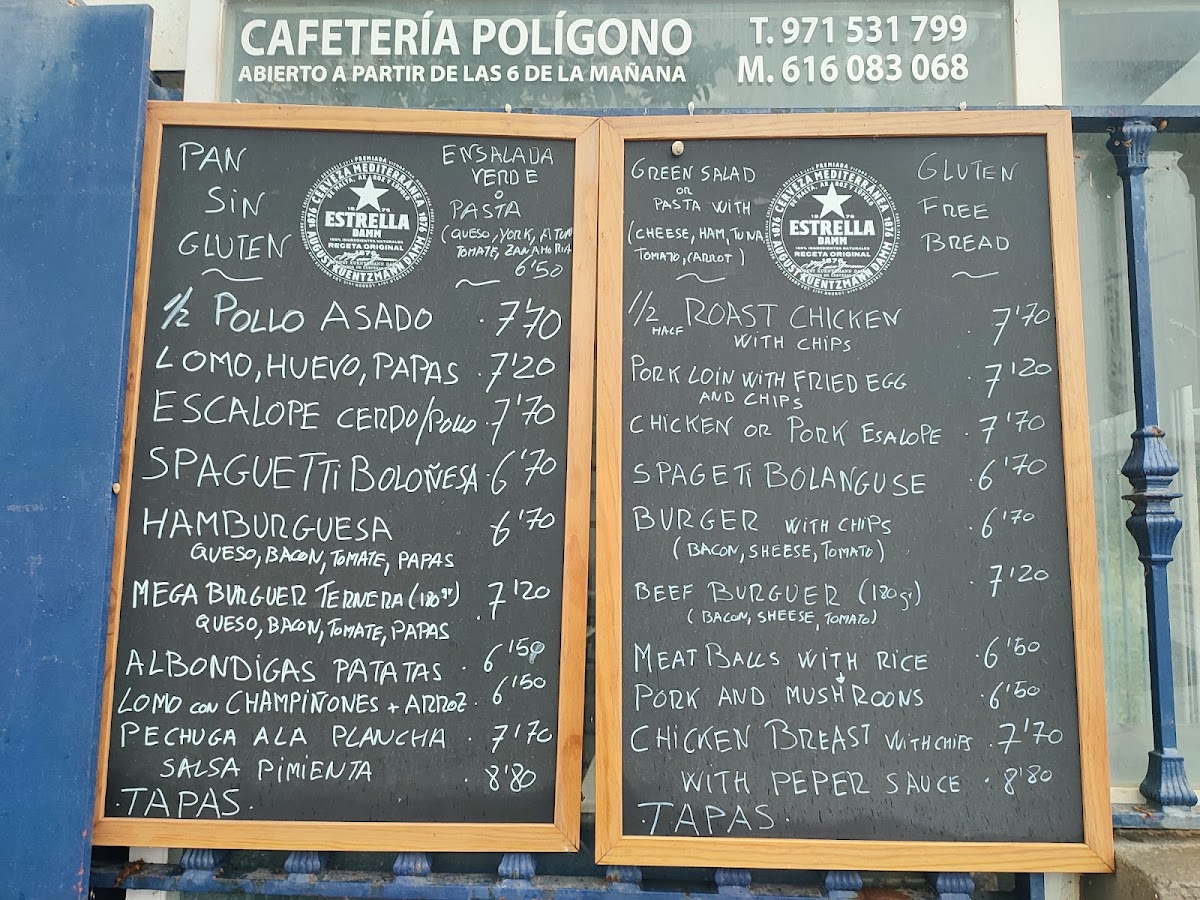 CAFETERÍA POLÍGONO
ABIERTO A PARTIR DE LAS 6 DE LA MAÑANA
T. 971 531 799
M. 616 083 068
PAN
SIN
GLUTEN
PREMIADA
CERVEZA MEDITERRÁNEA
DE MALTA, ARROZ Y LÚPULO
1876
1876
ESTRELLA
DAMM
100% INGREDIENTES NATURALES
RECETA ORIGINAL
1876
AUGUST KUENTZMANN DAMM
ENSALADA
VERDE
O
PASTA
(QUESO, YORK, ATUN
TOMATE, ZANAHORIA
6'50
1/2 POLLO ASADO . 7'70
LOMO, HUEVO, PAPAS . 7'20
ESCALOPE CERDO/POLLO . 7'70
SPAGUETTI BOLOÑESA . 6'70
HAMBURGUESA 6'70
QUESO, BACON, TOMATE, PAPAS
MEGA BURGUER TERNERA (180 gr) . 7'20
QUESO, BACON, TOMATE, PAPAS
ALBONDIGAS PATATAS . 6'50
LOMO CON CHAMPIÑONES + ARROZ . 6'50
PECHUGA A LA PLANCHA . 7'70
SALSA PIMIENTA . 8'80
. TAPAS .
GREEN SALAD
OR
PASTA WITH
(CHEESE, HAM, TUNA
TOMATO, CARROT)
PREMIADA
CERVEZA MEDITERRÁNEA
DE MALTA, ARROZ Y LÚPULO
1876
1876
ESTRELLA
DAMM
100% INGREDIENTES NATURALES
RECETA ORIGINAL
1876
AUGUST KUENTZMANN DAMM
GLUTEN
FREE
BREAD
1/2 ROAST CHICKEN . 7'70
HALF WITH CHIPS
PORK LOIN WITH FRIED EGG . 7'20
AND CHIPS
CHICKEN OR PORK ESALOPE . 7'70
SPAGETI BOLANGUSE . 6'70
BURGER WITH CHIPS . 6'70
(BACON, SHEESE, TOMATO)
BEEF BURGUER (180 gr) . 7'20
(BACON, SHEESE, TOMATO)
MEAT BALLS WITH RICE . 6'50
PORK AND MUSHROONS . 6'50
CHICKEN BREAST WITH CHIPS . 7'70
WITH PEPER SAUCE . 8'80
. TAPAS .